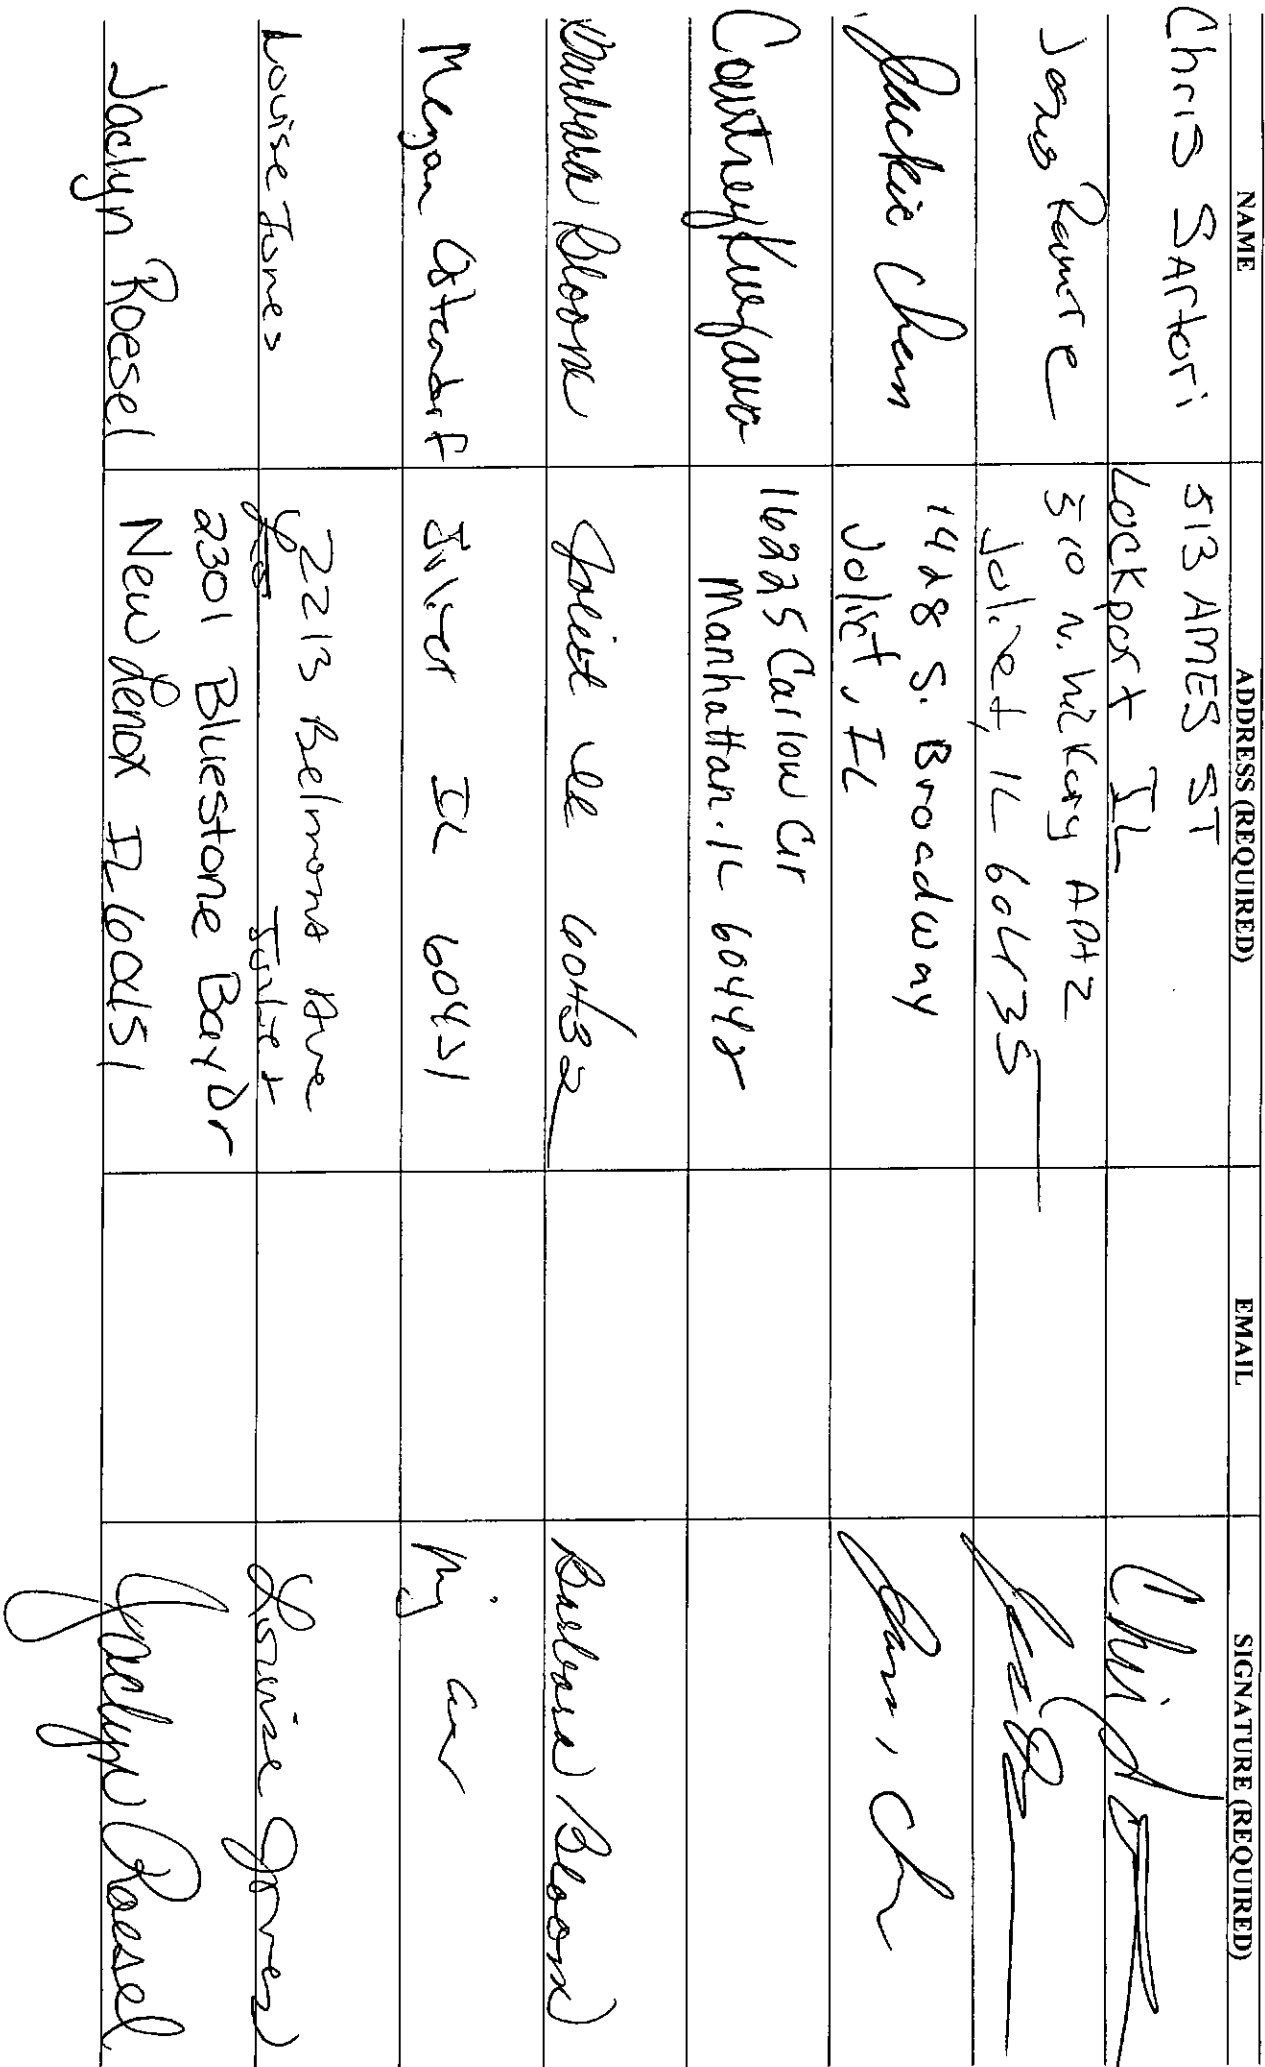 NAME ADDRESS (REQUIRED) EMAIL SIGNATURE (REQUIRED)
Chris Sartori 513 AMES ST
Lockport IL
510 N. hickory Apt 2
Joliet, IL 60435
Jackie Chen 1428 S. Broadway
Joliet, IL
Jackie Chen
Courtney 16225 Carlow Cir
Manhattan. IL 60442
Barbara Bloom Joliet Ill 60432 Barbara Bloom
Megan Ostendorf Joliet IL 60431
Louise Jones 2213 Belmont Ave
Joliet Louise Jones
Jaclyn Roesel 2301 Bluestone Bay Dr
New Lenox IL 60451 Jaclyn Roesel